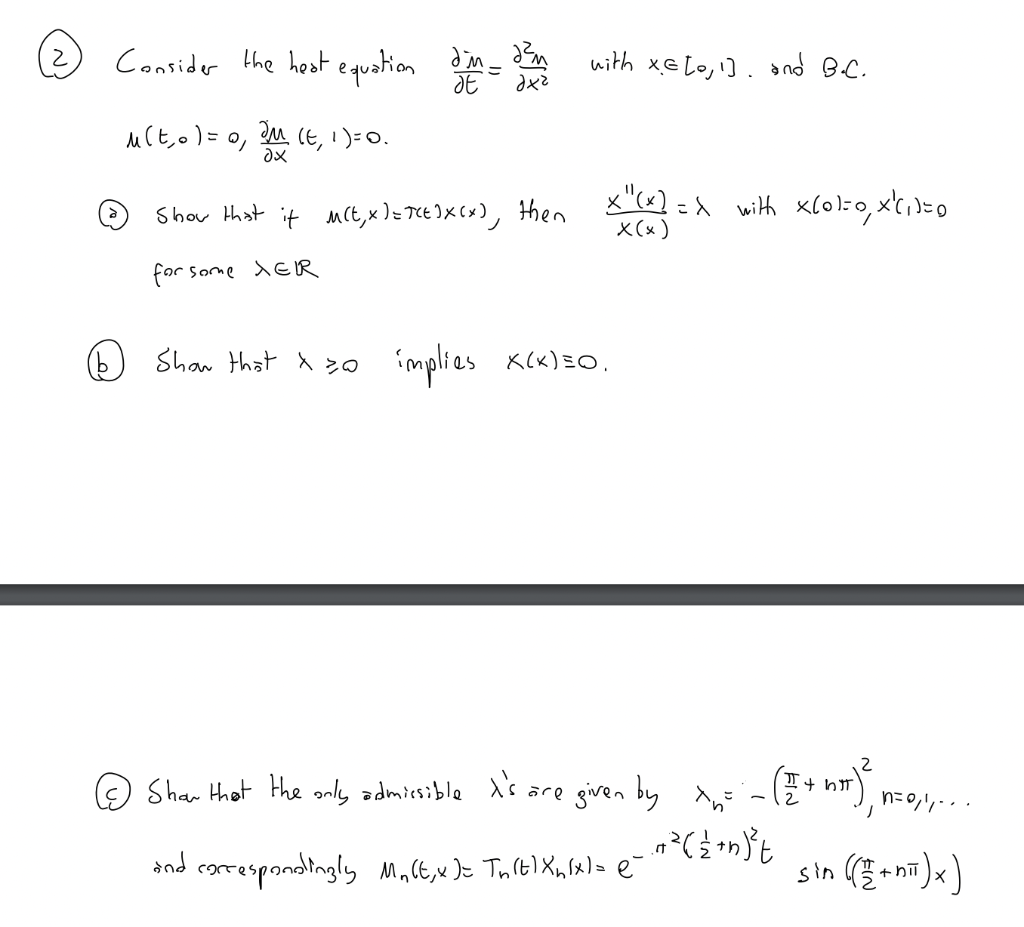 ② Consider the heat equation ∂u/∂t = ∂²u/∂x² with x∈[0,1]. and B.C.
u(t,0)=0, ∂u/∂x (t,1)=0.
ⓐ Show that if u(t,x)=T(t)X(x), then X''(x)/X(x) = λ with X(0)=0, X'(1)=0
for some λ∈ℝ
ⓑ Show that λ≥0 implies X(x)≡0.
ⓒ Show that the only admissible λ's are given by λₙ = -(π/2 + nπ)², n=0,1,...
and correspondingly uₙ(t,x) = Tₙ(t)Xₙ(x) = e^{-π²(1/2+n)²t} sin((π/2+nπ)x)